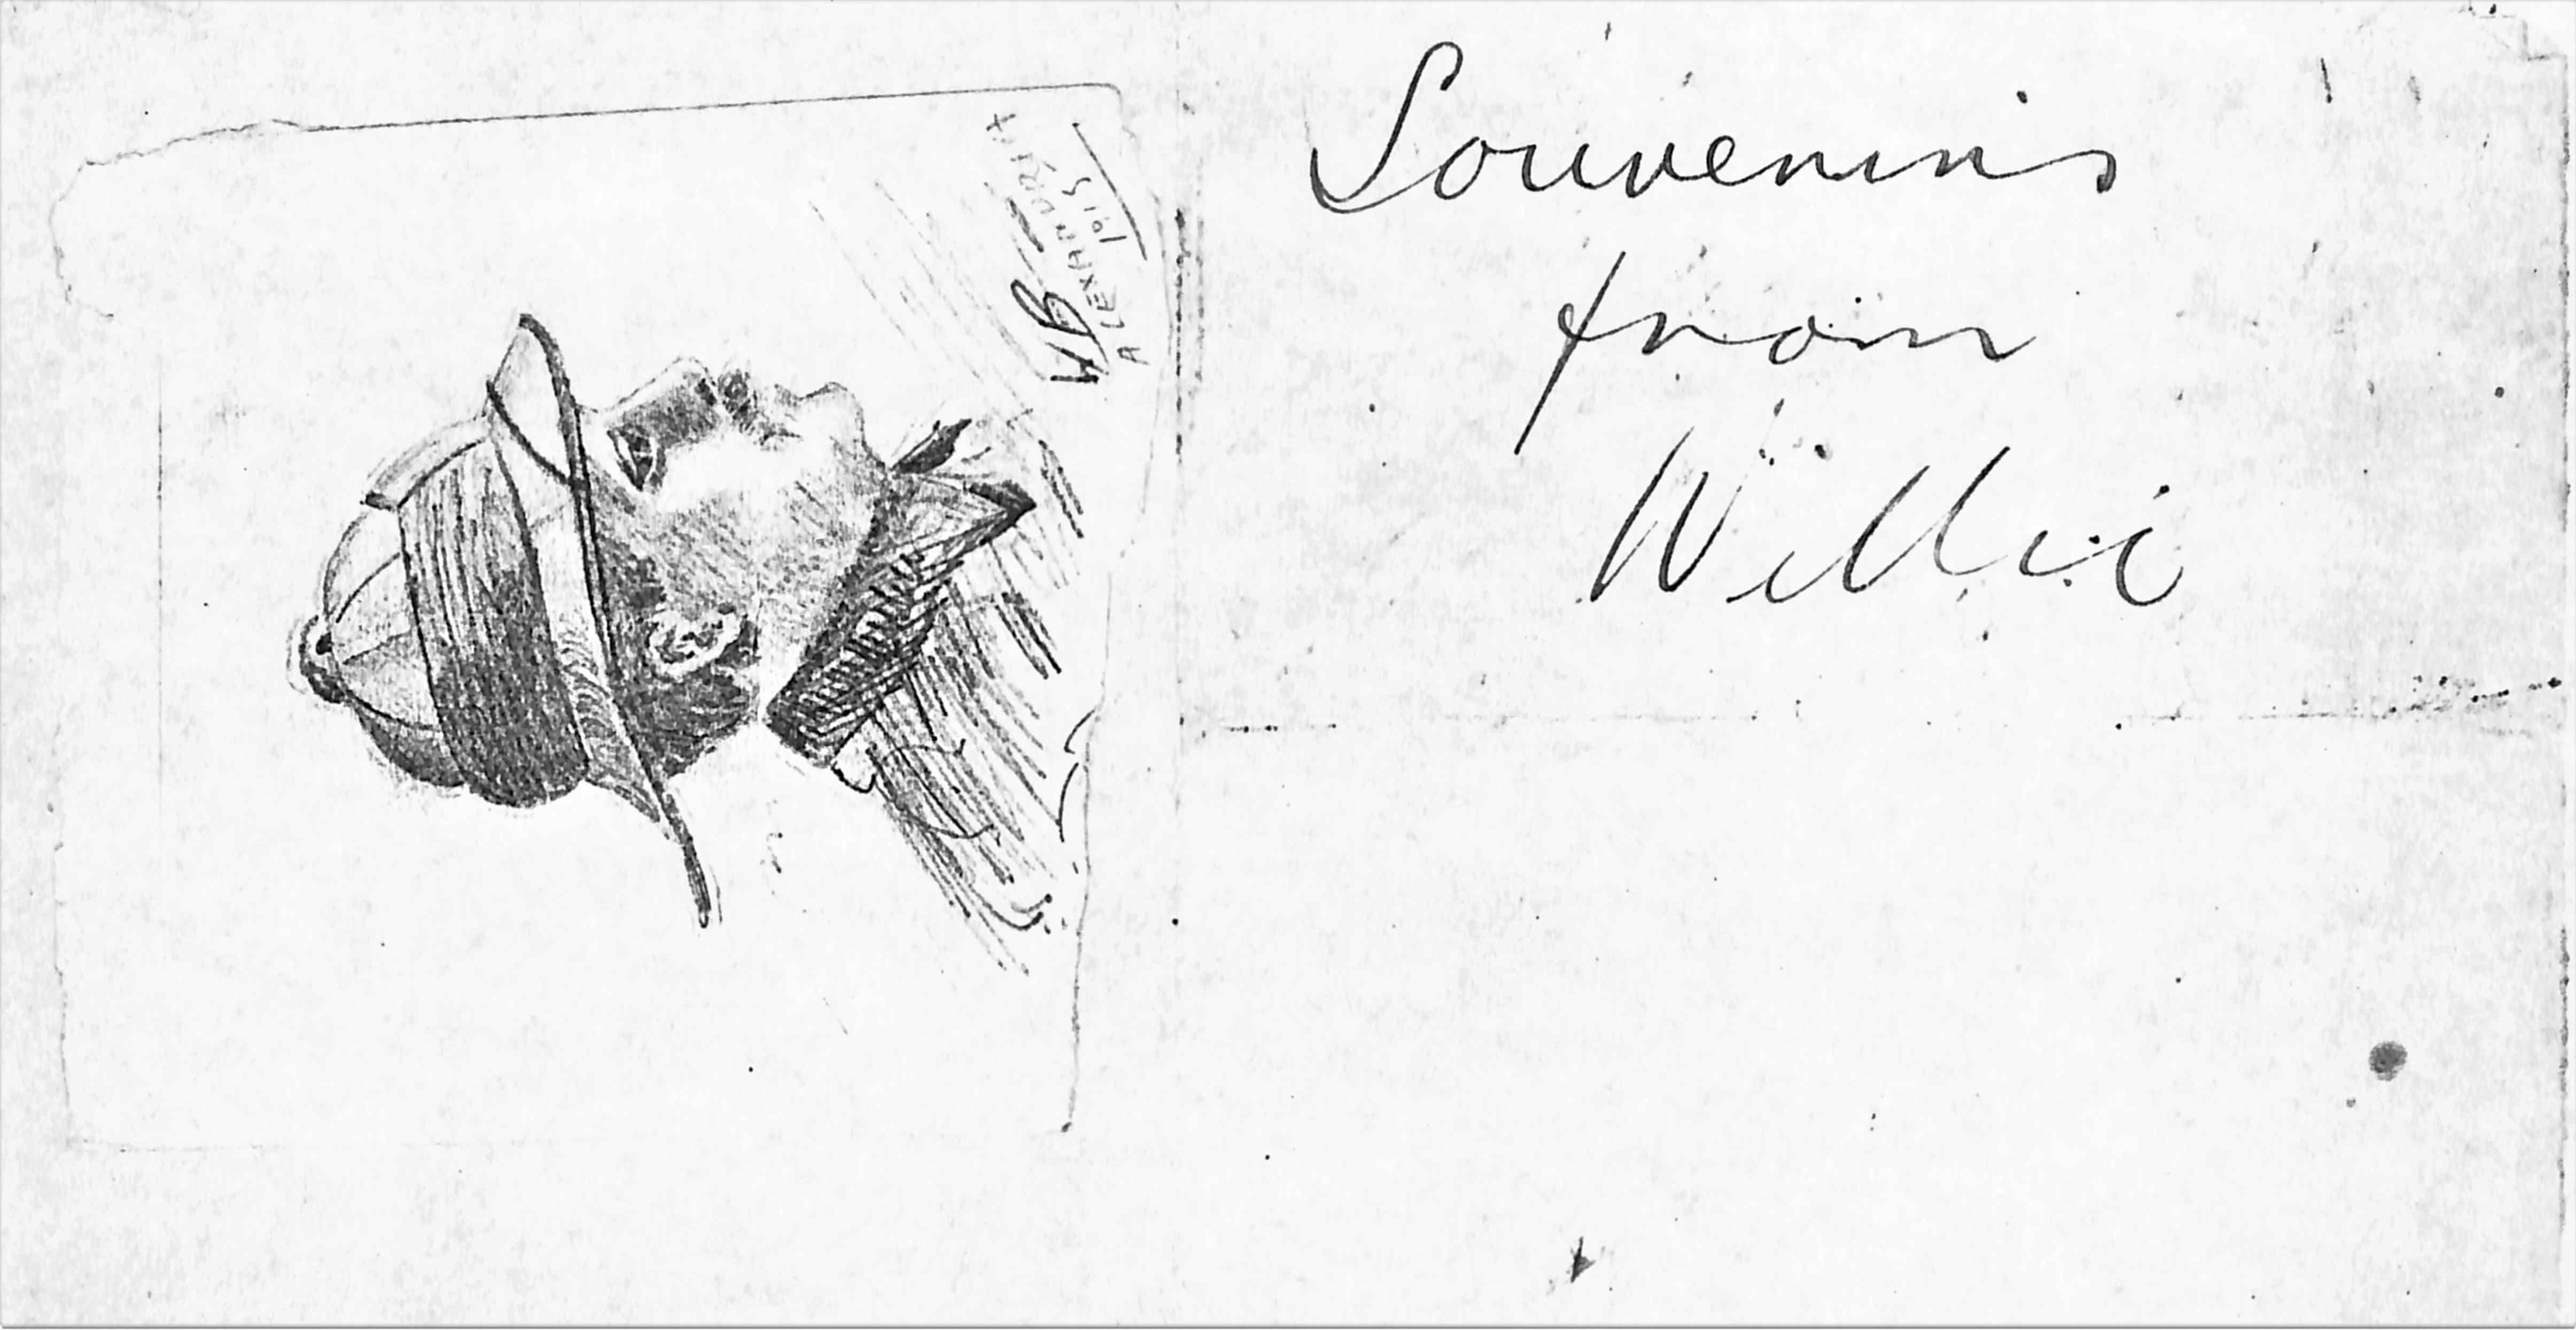 WB
ALEXANDRIA
1915
Souvenirs
from
Willie